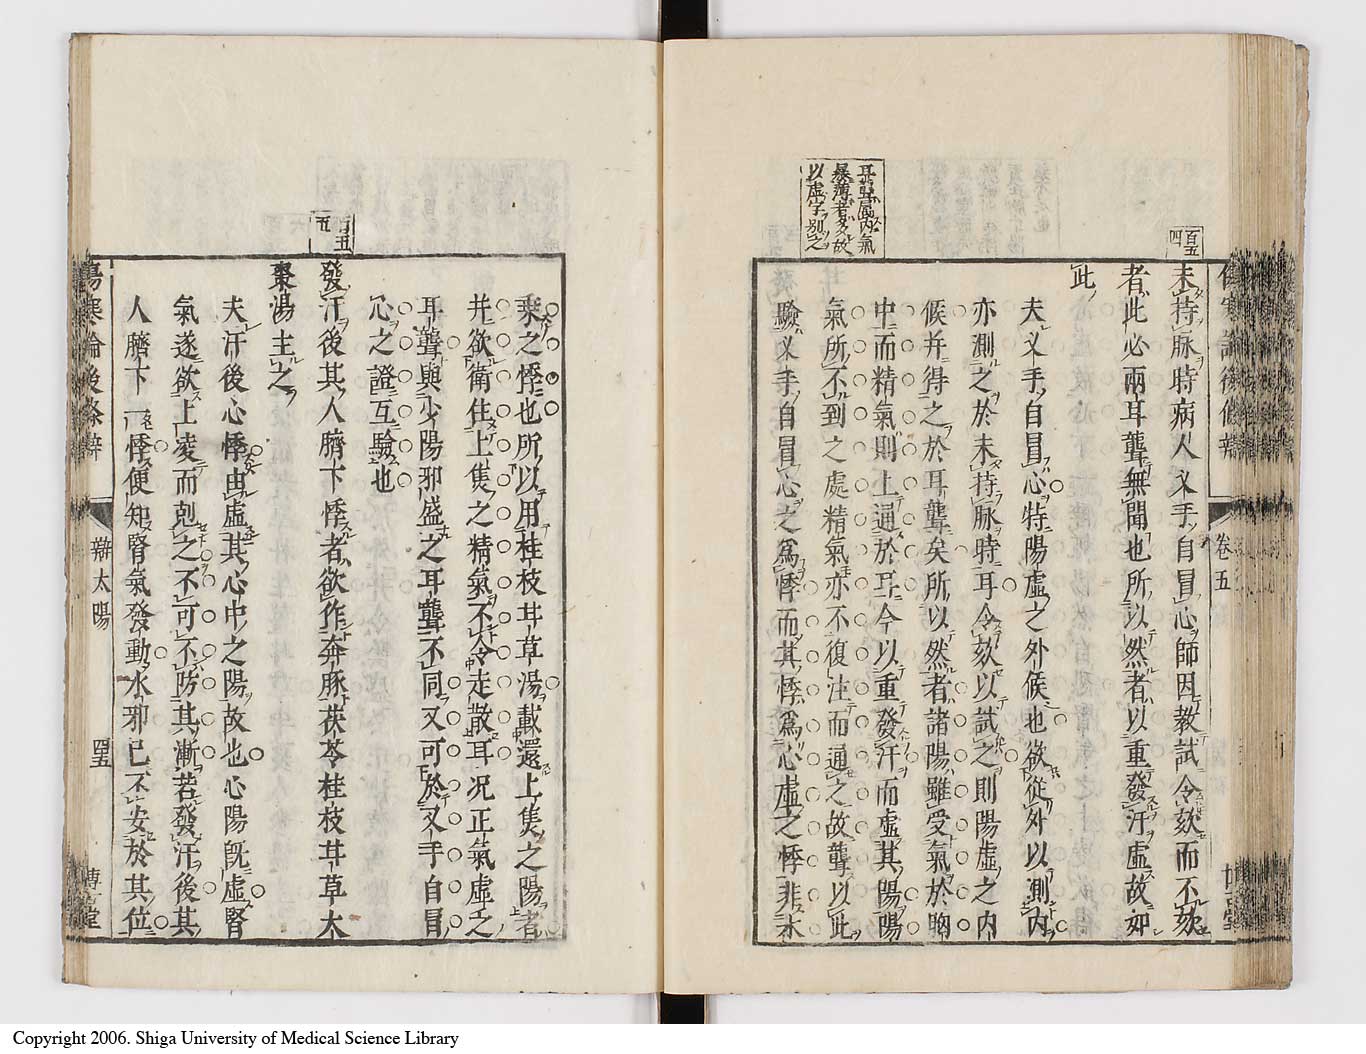 百五
四
未持脉時病人叉手自冒心師因教試令欬而不欬
者此必兩耳聾無聞也所以然者以重發汗虛故如
此
夫叉手自冒心特陽虛之外候也欲從外以測內
亦測之於未持脉時耳令欬以試之則陽虛之內
候并得之於耳聾矣所以然者諸陽雖受氣於胸
中而精氣則上通於耳今以重發汗而虛其陽陽
氣所不到之處精氣亦不復注而通之故聾以此
驗叉手自冒心之爲悸而其悸爲心虛之悸非水
耳聾屬內氣
暴薄者多故
以虛字別之
傷寒論後條辨
卷五
博古堂
乘之悸也所以用桂枝甘草湯載還上焦之陽者
并欲衛住上焦之精氣不令走散耳况正氣虛之
耳聾與少陽邪盛之耳聾不同又可於叉手自冒
心之證互驗也
百五
五
發汗後其人臍下悸者欲作奔豚茯苓桂枝甘草大
棗湯主之
夫汗後心悸由虛其心中之陽故也心陽旣虛腎
氣遂欲上凌而剋之不可不防其漸若發汗後其
人臍下悸便知腎氣發動水邪已不安於其位
傷寒論後條辨
辯太陽
博古堂